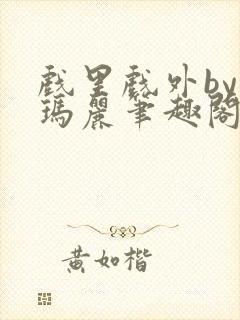 戲里戲外by
瑪麗筆趣閣
黄如楷